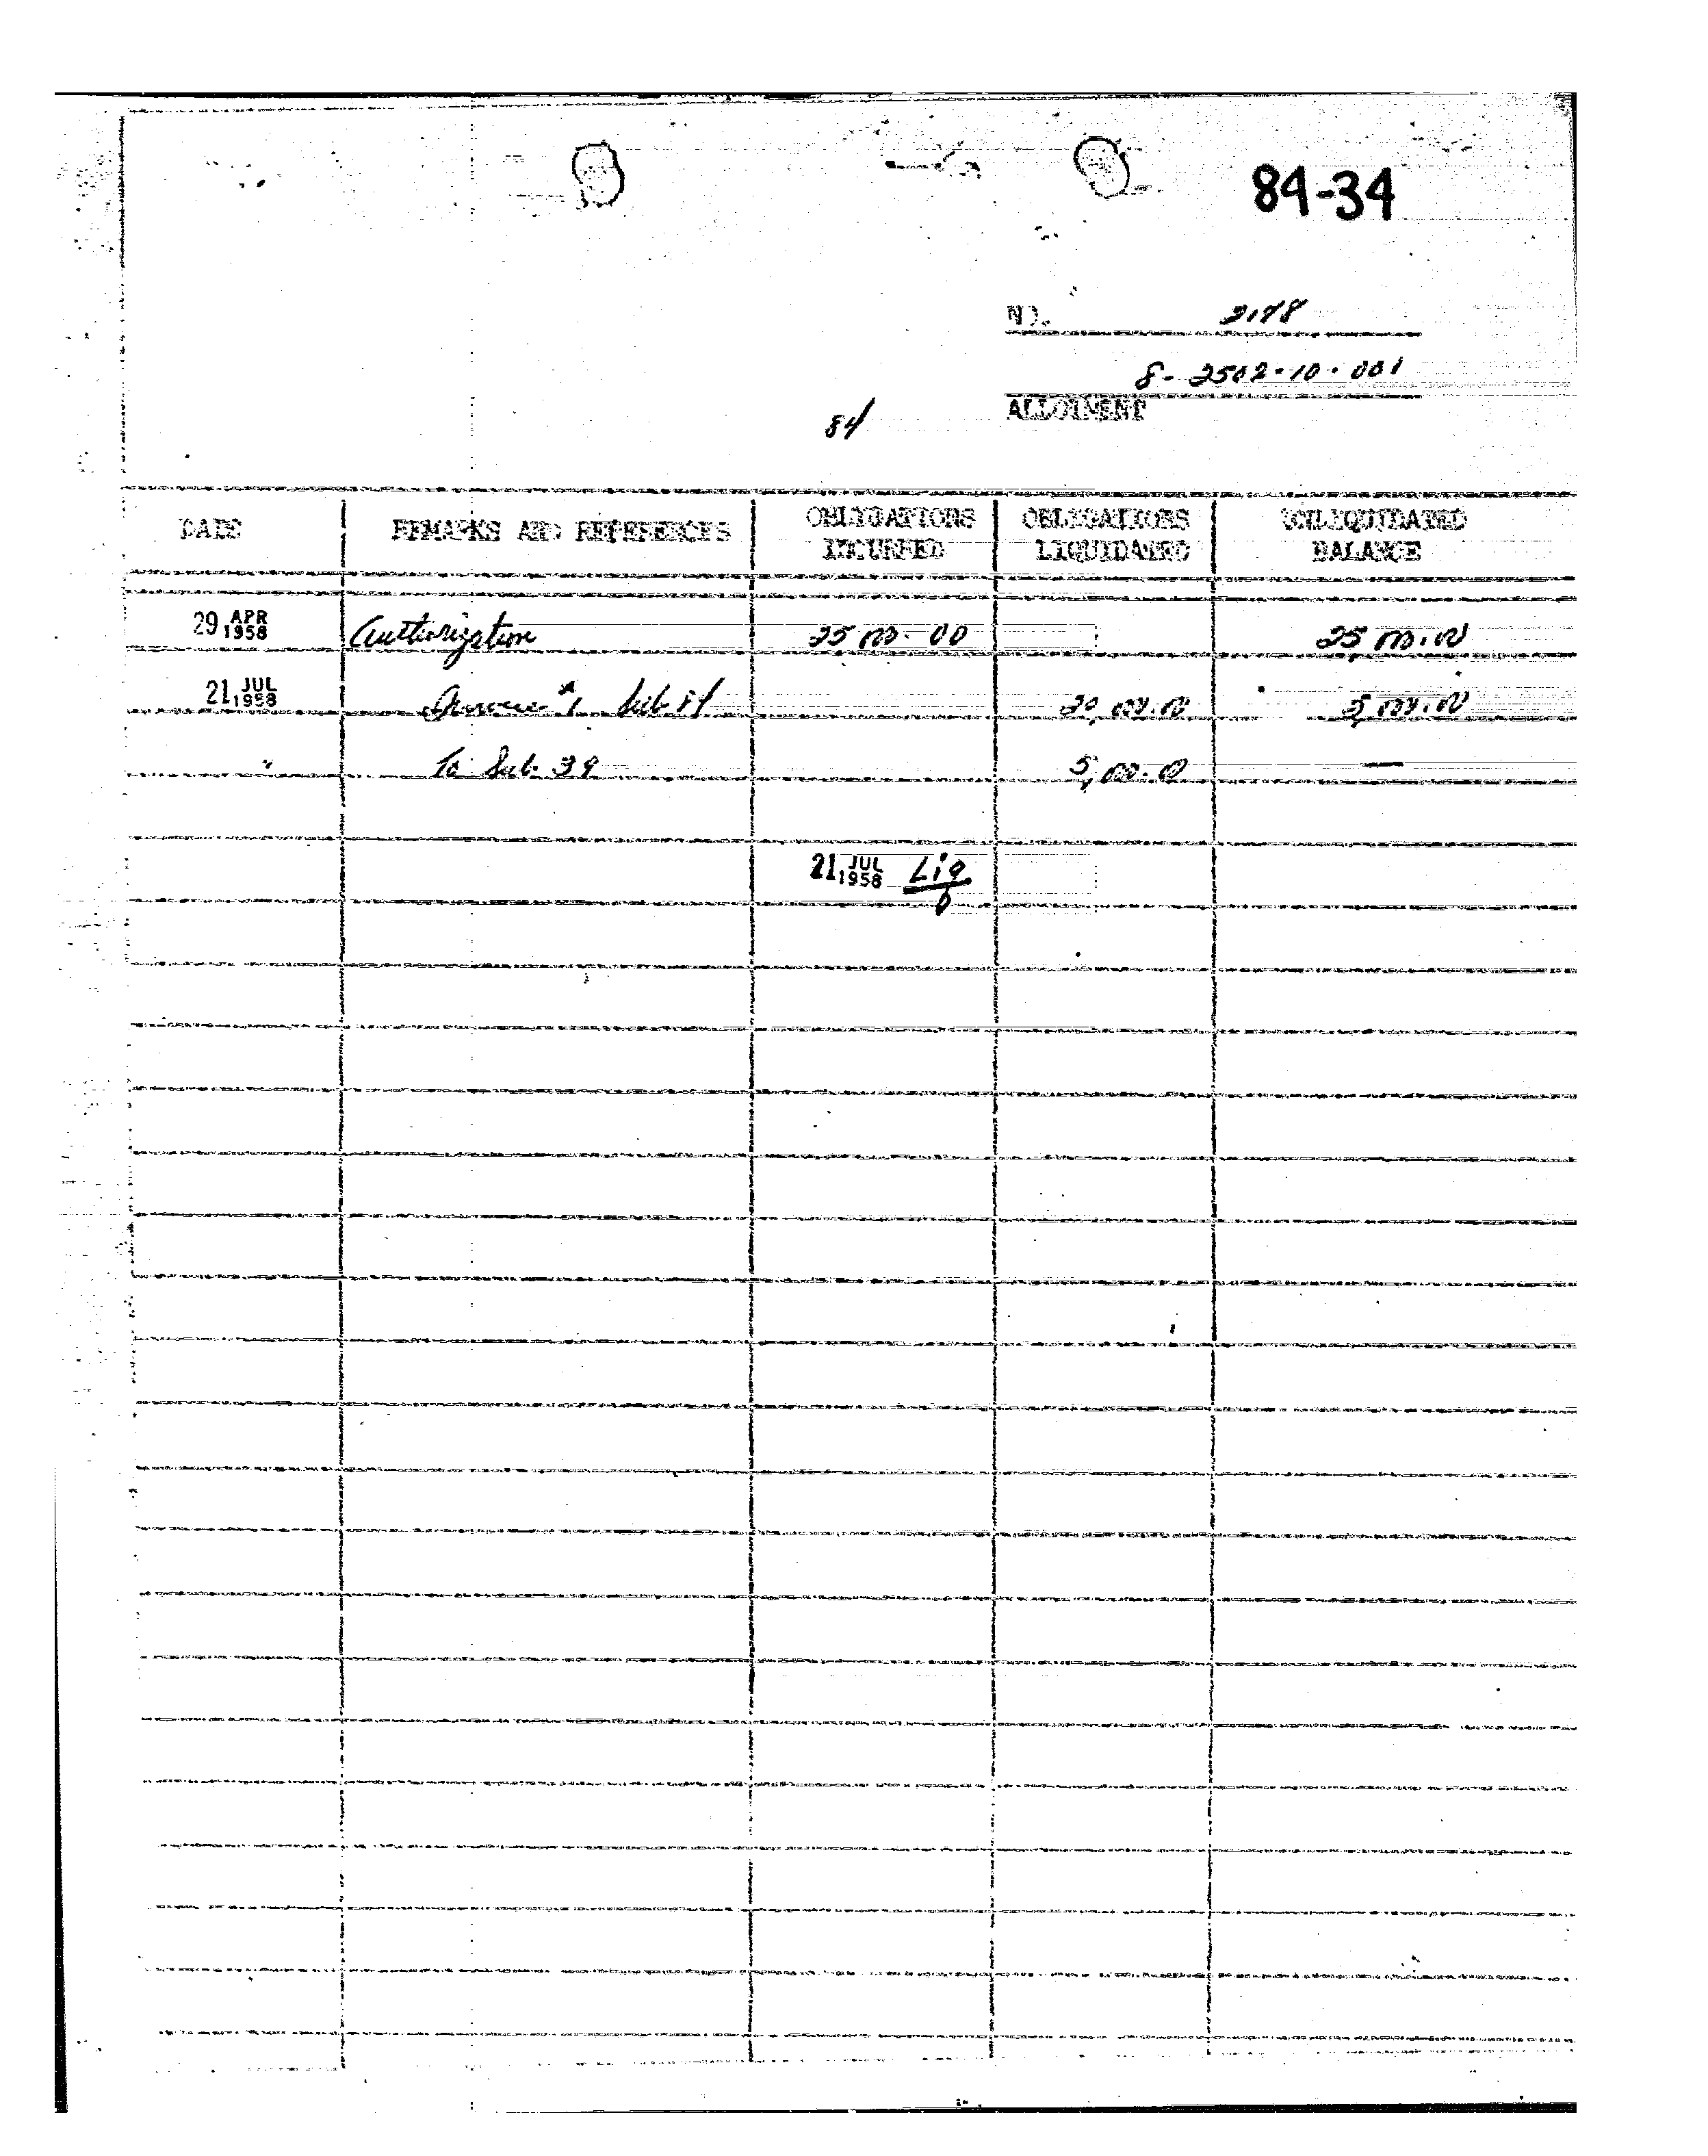 84-34
NO. 2178
8-2502-10-001
ALLOTMENT
84
DATE REMARKS AND REFERENCES OBLIGATIONS INCURRED OBLIGATIONS LIQUIDATED UNLIQUIDATED BALANCE
29 APR 1958 Authorization 25 000.00 25 000.00
21 JUL 1958 Invoice #1 Sub 84 20,000.00 5,000.00
" To Sub. 39 5,000.00 —
21 JUL 1958 Liq